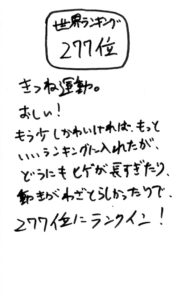 世界ランキング
277位
きつね運動。
おしい!
もう少しかわいければ、もっと
いいランキングに入れたが、
どうにもヒゲが長すぎたり、
動きがわざとらしかったりで、
277位にランクイン!